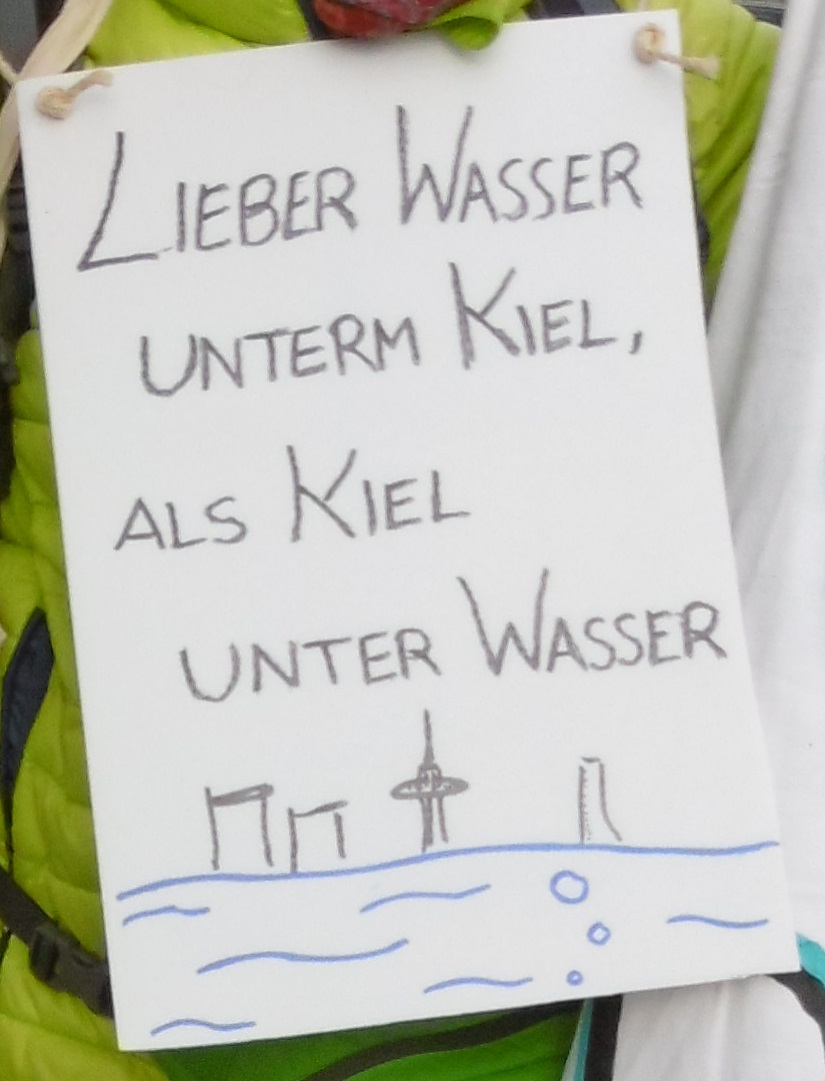 LIEBER WASSER
UNTERM KIEL,
ALS KIEL
UNTER WASSER